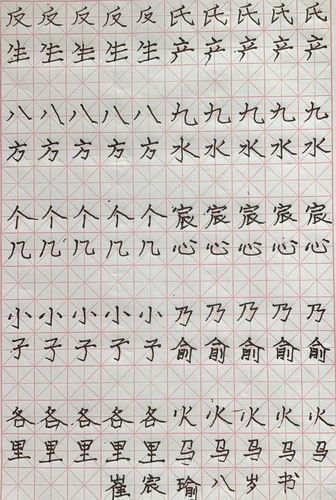 反反反反反氏氏氏氏氏
生生生生生产产产产产
八八八八八九九九九九
方方方方方水水水水水
个个个个个宸宸宸宸宸
几几几几几心心心心心
小小小小小乃乃乃乃乃
子子子子子俞俞俞俞俞
各各各各各火火火火火
里里里里里马马马马马
崔宸瑜八岁书